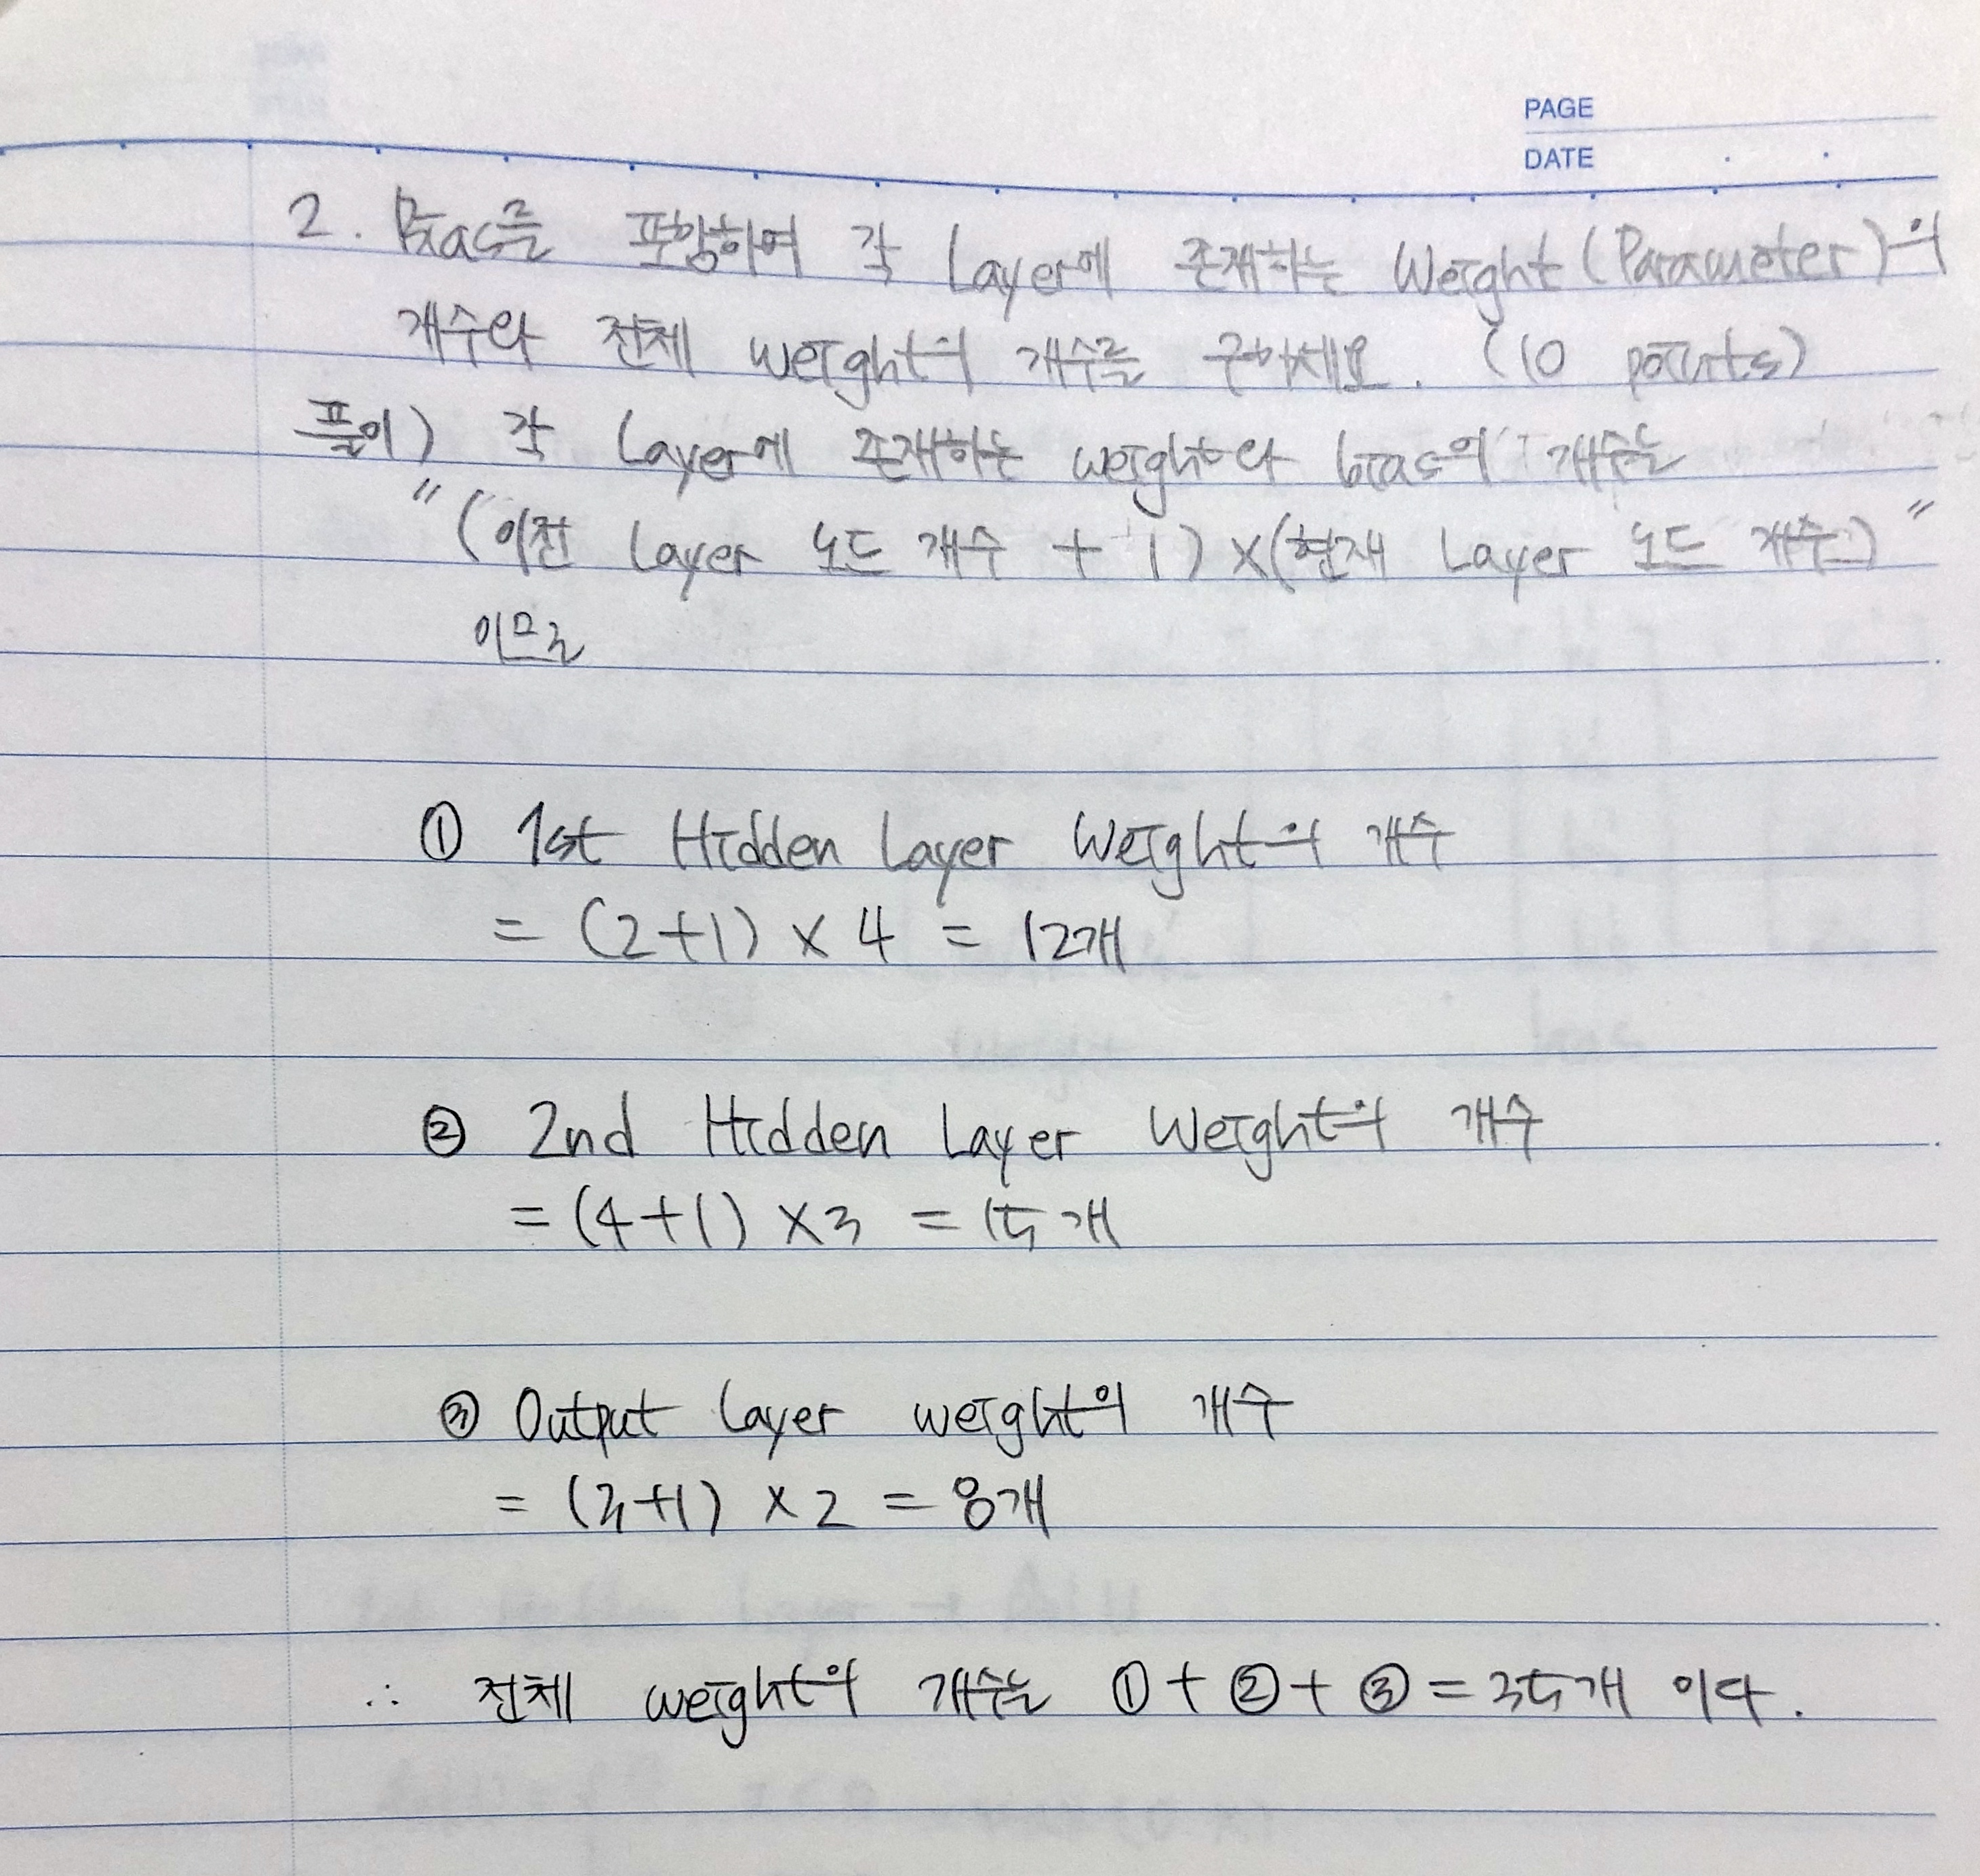 PAGE
DATE
2. Bias를 포함하여 각 Layer에 존재하는 Weight (Parameter)의
개수와 전체 weight의 개수를 구하세요. (10 points)
풀이) 각 Layer에 존재하는 weight와 bias의 개수는
"(이전 Layer 노드 개수 + 1) × (현재 Layer 노드 개수)"
이므로
① 1st Hidden Layer Weight의 개수
= (2+1) × 4 = 12개
② 2nd Hidden Layer Weight의 개수
= (4+1) × 3 = 15개
③ Output Layer weight의 개수
= (3+1) × 2 = 8개
∴ 전체 weight의 개수는 ① + ② + ③ = 35개 이다.